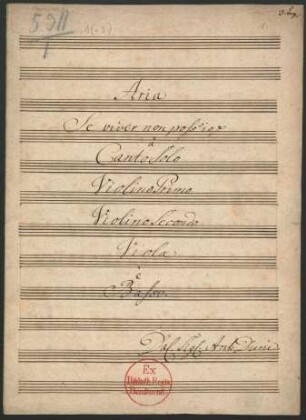 591
1
Aria
Se viver non poss'io
a
Canto Solo
Violino Primo
Violino Secondo
Viola
è
Basso.
Del Sig.
Ex
Biblioth. Regia
Berolinensi.